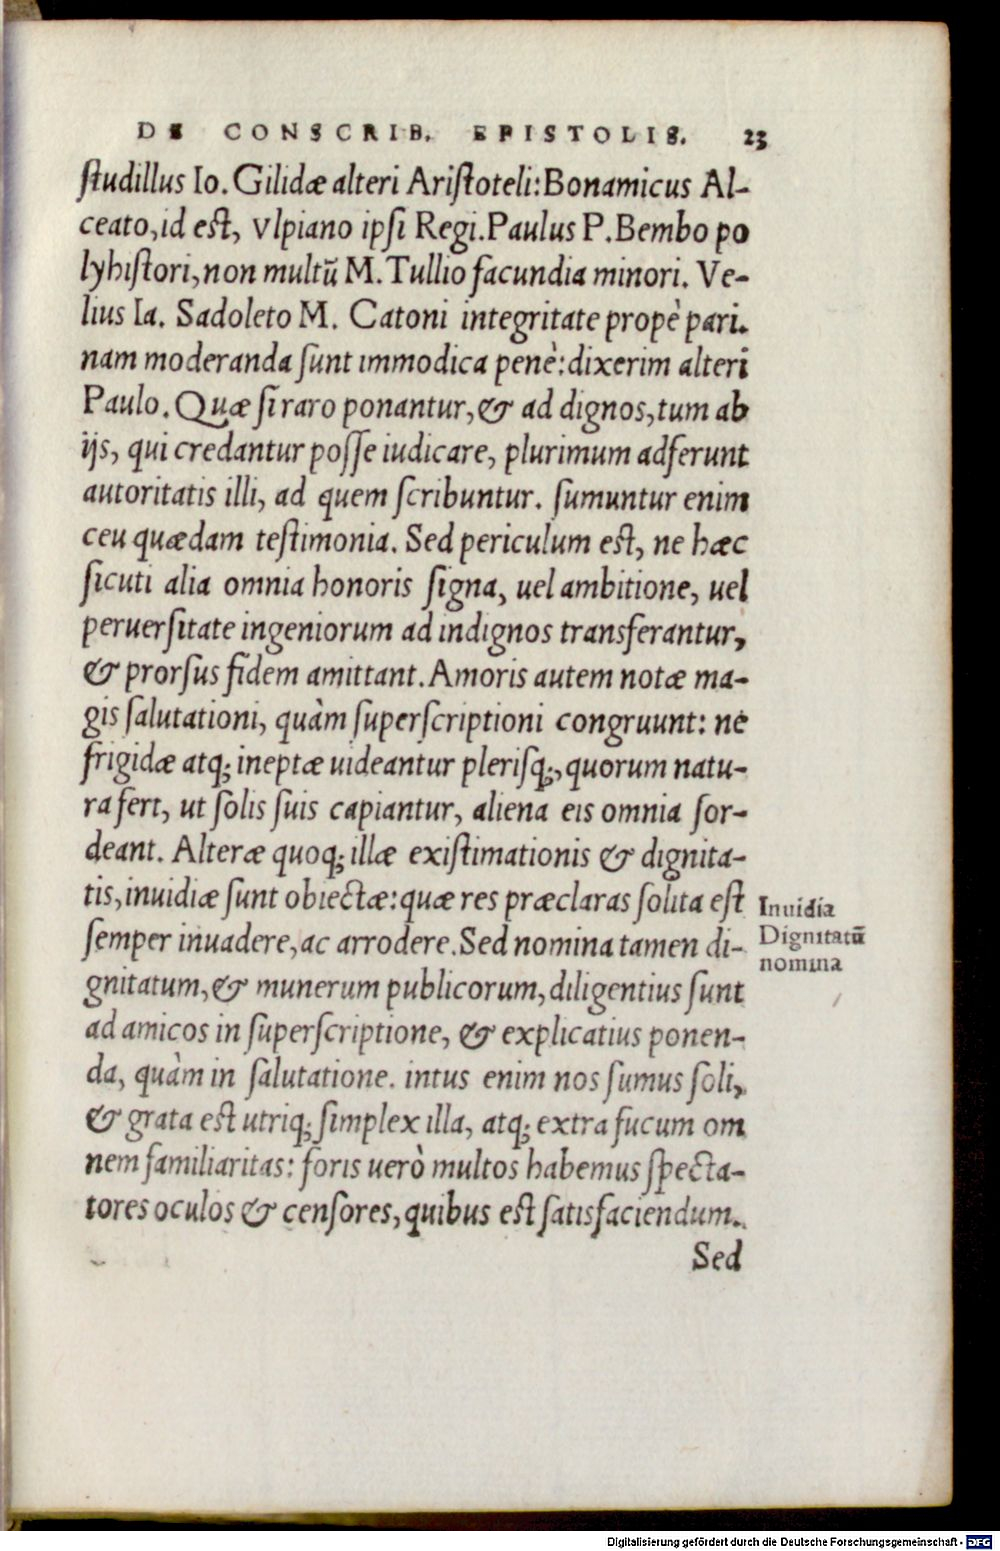 DE CONSCRIB. EPISTOLIS. 23
ſtudillus Io. Gilidæ alteri Ariſtoteli: Bonamicus Al-
ceato, id eſt, Vlpiano ipſi Regi. Paulus P. Bembo po
lyhiſtori, non multũ M. Tullio facundia minori. Ve-
lius Ia. Sadoleto M. Catoni integritate propè pari.
nam moderanda ſunt immodica penè: dixerim alteri
Paulo. Quæ ſi raro ponantur, & ad dignos, tum ab
ijs, qui credantur poſſe iudicare, plurimum adferunt
autoritatis illi, ad quem ſcribuntur. ſumuntur enim
ceu quædam teſtimonia. Sed periculum eſt, ne hæc
ſicuti alia omnia honoris ſigna, uel ambitione, uel
peruerſitate ingeniorum ad indignos transferantur,
& prorſus fidem amittant. Amoris autem notæ ma-
gis ſalutationi, quàm ſuperſcriptioni congruunt: ne
frigidæ atq; ineptæ uideantur pleriſq;, quorum natu-
ra fert, ut ſolis ſuis capiantur, aliena eis omnia ſor-
deant. Alteræ quoq; illæ exiſtimationis & dignita-
tis, inuidiæ ſunt obiectæ: quæ res præclaras ſolita eſt
ſemper inuadere, ac arrodere. Sed nomina tamen di-
gnitatum, & munerum publicorum, diligentius ſunt
ad amicos in ſuperſcriptione, & explicatius ponen-
da, quàm in ſalutatione. intus enim nos ſumus ſoli,
& grata eſt utriq; ſimplex illa, atq; extra fucum om
nem familiaritas: foris uerò multos habemus ſpecta-
tores oculos & cenſores, quibus eſt ſatisfaciendum.
Sed
Inuidia
Dignitatũ
nomina
Digitalisierung gefördert durch die Deutsche Forschungsgemeinschaft - DFG